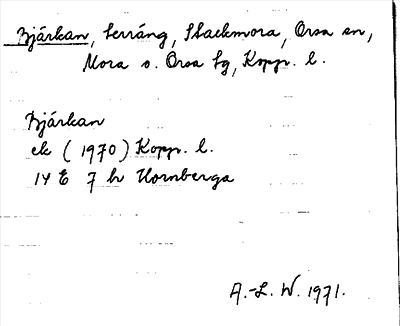 Bjárkan, terräng, Stackmora, Orsa sn,
Mora o. Orsa tg, Kopp. l.
Bjárkan
ek (1970) Kopp. l.
14 E 7 h Hornberga
A.-L. W. 1971.